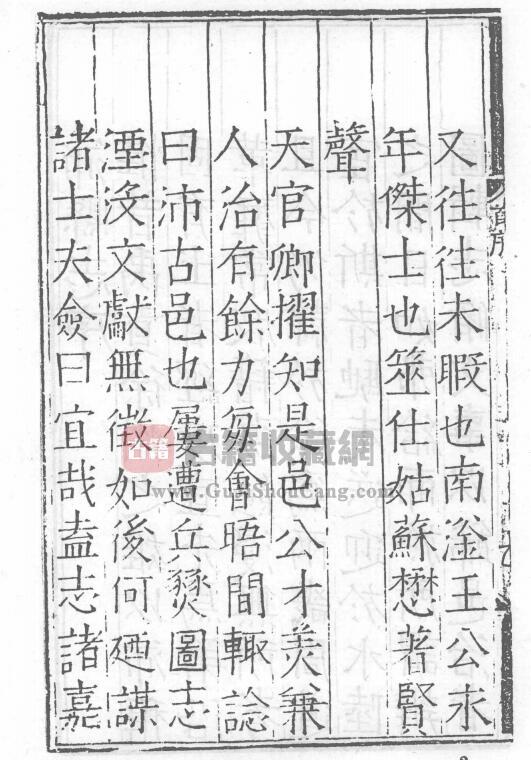 又往往未暇也南滏王公永
年傑士也筮仕姑蘇懋著賢
聲
天官卿擢知是邑公才羙兼
人治有餘力每會晤間輙諗
曰沛古邑也屢遭兵燹圖志
湮沒文獻無徵如後何廼謀
諸士夫僉曰宜哉盍志諸嘉
古籍收藏網
www.GuJiShouCang.com